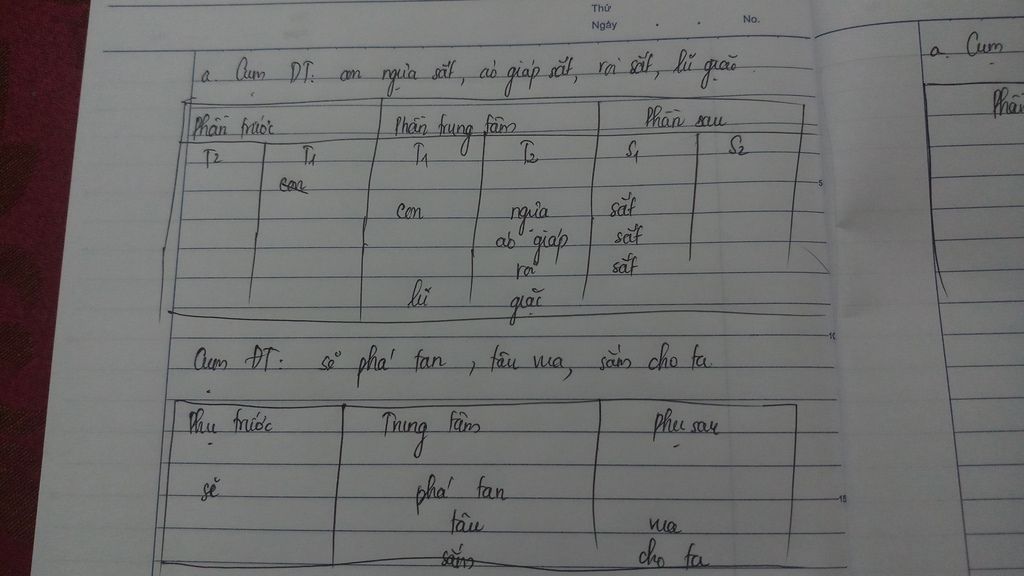 Thứ
Ngày . . No.
a. Cụm DT: con ngựa sắt, áo giáp sắt, roi sắt, lũ giặc
a. Cụm
Phần trước Phần trung tâm Phần sau
Phần
T2 T1 T1 T2 S1 S2
con
5
con ngựa sắt
áo giáp sắt
roi sắt
lũ giặc
10
Cụm ĐT: sẽ phá tan, tâu vua, sắm cho ta
Phụ trước Trung tâm Phụ sau
sẽ phá tan
15
tâu vua
sắm cho ta